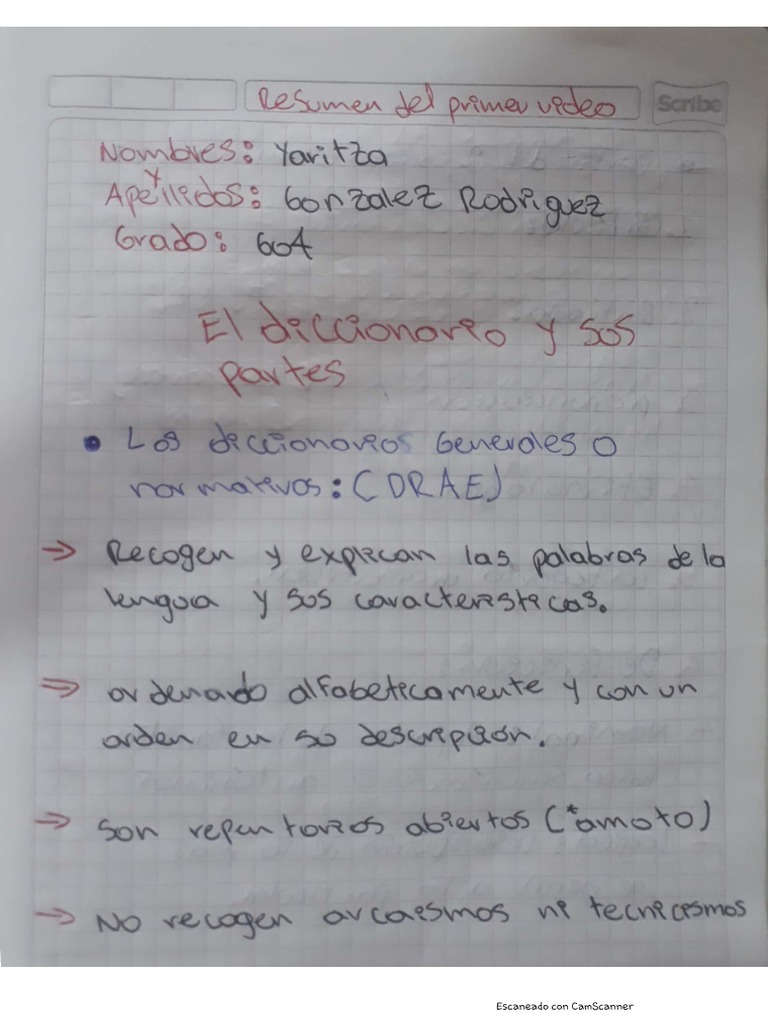 Resumen del primer video
Scribe
Nombres: Yaritza
y
Apellidos: Gonzalez Rodriguez
Grado: 604
El diccionario y sos
partes
• Los diccionarios Generales o
normativos: (DRAE)
→ Recogen y explican las palabras de la
lengua y sos caracteristicas.
→ ordenado alfabeticamente y con un
orden en so descripción.
→ Son repentorios abiertos (*amoto)
→ No recogen arcaismos ni tecnicismos
Escaneado con CamScanner